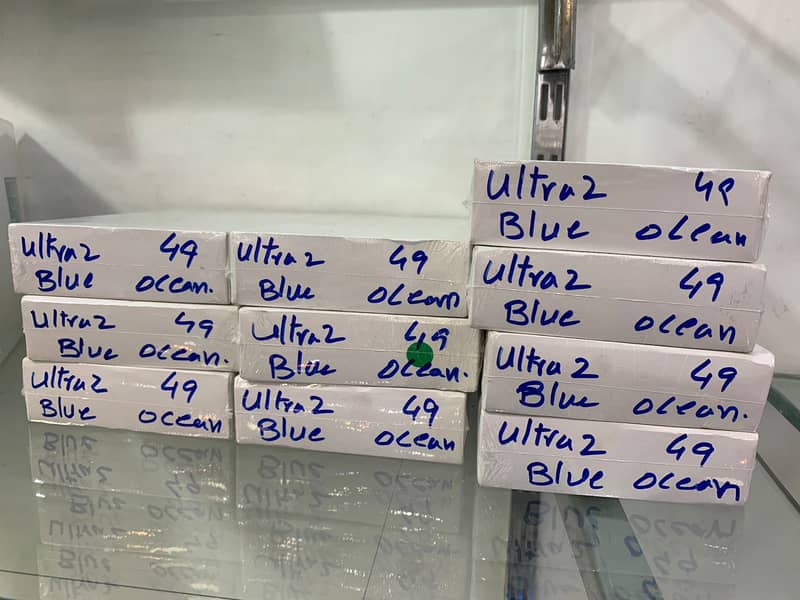 Ultra2 49
Blue Ocean.
Ultra2 49
Blue Ocean.
Ultra2 49
Blue Ocean
Ultra2 49
Blue Ocean
Ultra2 49
Blue Ocean.
Ultra2 49
Blue Ocean
Ultra2 49
Blue Ocean
Ultra2 49
Blue Ocean
Ultra2 49
Blue Ocean.
Ultra2 49
Blue Ocean